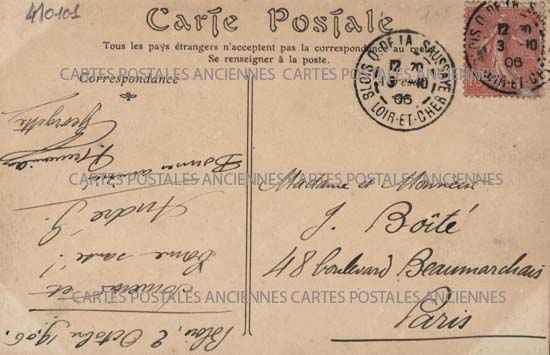 4/0101
Carte Postale
Tous les pays étrangers n'acceptent pas la correspondance au
Se renseigner à la poste.
Correspondance
BLOIS D. DE LA SAUSSAYE
12-20
3-10
06
LOIR-ET-CHER
BLOIS D. DE LA SAUSSAYE
12-20
3-10
06
LOIR-ET-CHER
CARTES POSTALES ANCIENNES CARTES POSTALES ANCIENNES
CARTES POSTALES ANCIENNES CARTES POSTALES ANCIENNES
CARTES POSTALES ANCIENNES CARTES POSTALES ANCIENNES
Madame et Monsieur
J. Boîté
48 boulevard Beaumarchais
Paris
Blois, 2 Octobre 1906.
Souvenirs et
bonne santé !
André G.
Bonnes
Georgette